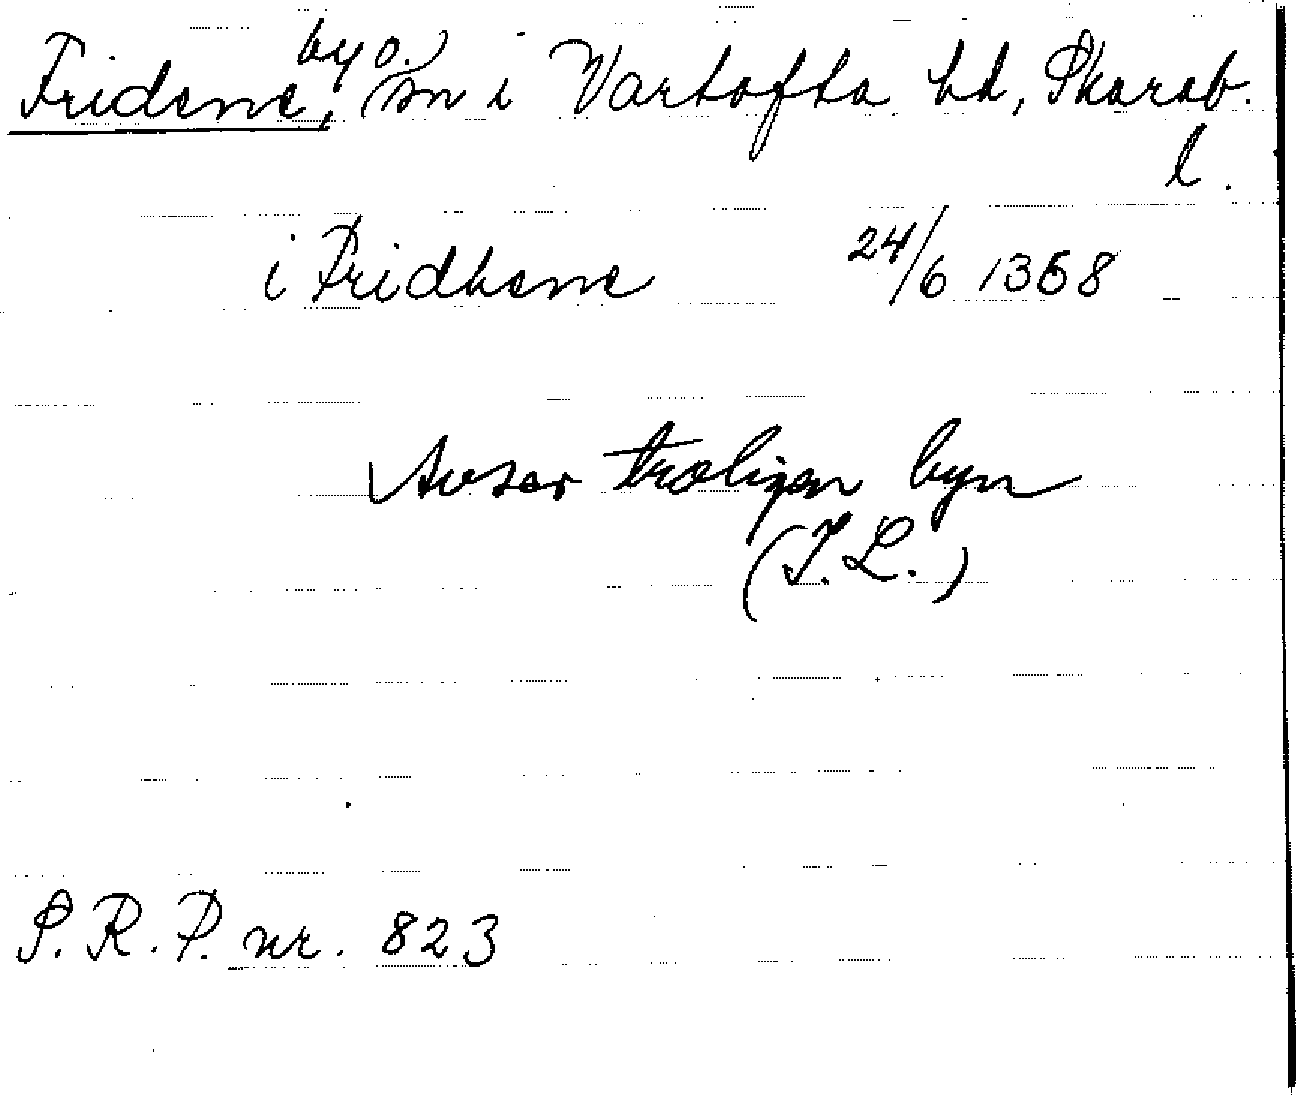 Fridene, by o. sn i Vartofta hd, Skarab.
l.
i Fridhene 24/6 1368
Avser troligen byn
(I.L.)
S.R.P. nr. 823